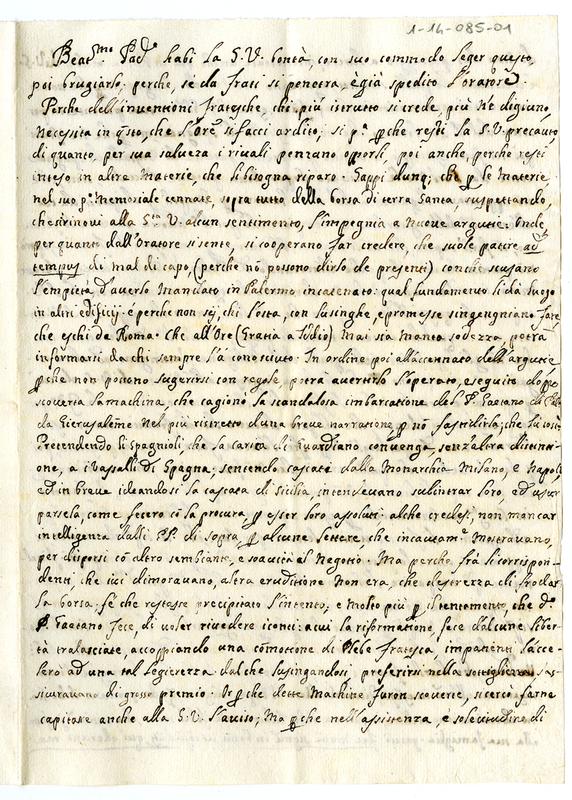 1-14-085-01
Beat.mo Pad.e habi la S.V. bontà, con suo commodo leger questo,
poi brugiarlo; perche, se da frati si penetra, è già spedito l'oratore.
Perche dell'inventioni fratesche chi più istrutto si crede, più n'è digiuno,
necessita in q.sto, che l'Ore si facci ardito; si p.a perche resti la S.V. precauto
di quanto, per sua salveza i rivali penzano opporli, poi anche, perche resti
inteso in altre materie, che li bisogna riparo. Sappi dunq; che per le materie
nel suo p.o Memoriale cennate, sopra tutto della borsa di terra Santa, suspettando,
che si rinovi alla S.tà V. alcun sentimento, s'impegnia à nuove argutie: Onde,
per quanto dall'Oratore si sente, si cooperano far credere, che suole patire ad
tempus di mal di capo, (perche nõ possono dirlo de presenti) con che scusano
l'empietà d'averlo Mandato in Palermo incatenato: qual fundamento li dà luogo
in altri edificij: e perche non sij, chi l'osta, con lusinghe, e promesse s'ingengniano fare,
che eschi da Roma. Che all'Ore (Gratia a Iddio) mai sia manca sodezza, potrà
informarsi da chi sempre l'à conosciuto. In ordine poi all'accennato dell'argutie
perche non possono sugerirsi con regole, potrà avertirlo l'operato, eseguito dopo
scoverta la machina, che cagionò la scandalosa imbarcatione del P. Gaetano di
da Gierusalẽme nel più ristretto d'una breve narratione per nõ fastidirla; che fù così.
Pretendendo li Spagnioli che la carica di Guardiano convenga, senz'altra distinti-
one, a i Vassalli di Spagna; sentendo cascata dalla Monarchia Milano, e Napoli,
ed in breve ideandosi la cascata di Sicilia, intendevano subintrar loro, ed usur
parsela, come fecero cõ la procura, per esser loro assoluti: al che credesi, non mancar
intelligenza dalli PP. di sopra, per alcune lettere, che incautam.e mostravano,
per disporsi cõ altro sembiante, e soavità il Negotio. Ma perche frà li corrispon-
denti, che ivi dimoravano, altra eruditione non era, che destrezza di frodar
la borsa; fè che restasse precipitato l'intento; e molto più per il tentamento, che d.o
P. Gaetano fece, di voler rivedere i conti: a cui la riformatione, fece d'alcune liber-
tà tralasciate, accoppiando una comotione di Plebe fratesca, impanenti l'acce-
lerò ad una tal legierezza dal che lusingandosi preferirsi nella sottigliezza, as-
sicuravano di grosso premio. Or perche dette Machine furon scoverte, si cercò farne
capitare anche alla S.V. l'aviso; Ma perche nell'assistenza, e solecitudine di